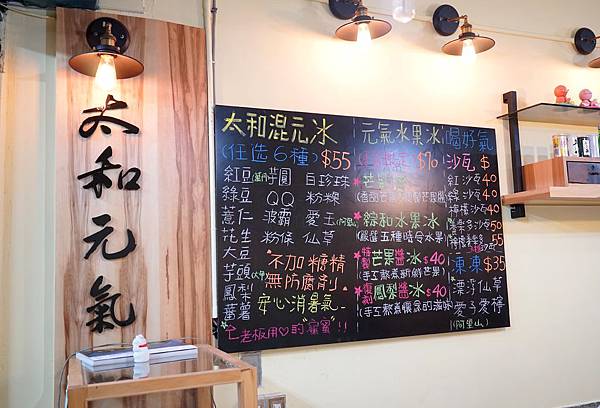 太和元氣
太和混元冰
(任选6種)$55
紅豆 芋圓 白珍珠
綠豆 QQ 粉粿
薏仁 波霸 愛玉(阿里山)
花生 粉條 仙草
大豆
芋頭(大甲)
鳳梨
蕃薯
"不加糖精
無防腐劑"
安心消暑氣
老板用♡的"蜜蜜"!!
元氣水果冰
$70
芒果
綜和水果冰
(嚴選五種時令水果)
芒果醬冰$40
(手工熬煮新鮮芒果)
鳳梨醬冰$40
(手工熬煮懷念的滋味)
喝好氣
沙瓦 $
紅沙瓦40
綠沙瓦40
檸檬沙瓦40
50
55
凍凍$35
漂浮仙草
愛子愛檸
(阿里山)